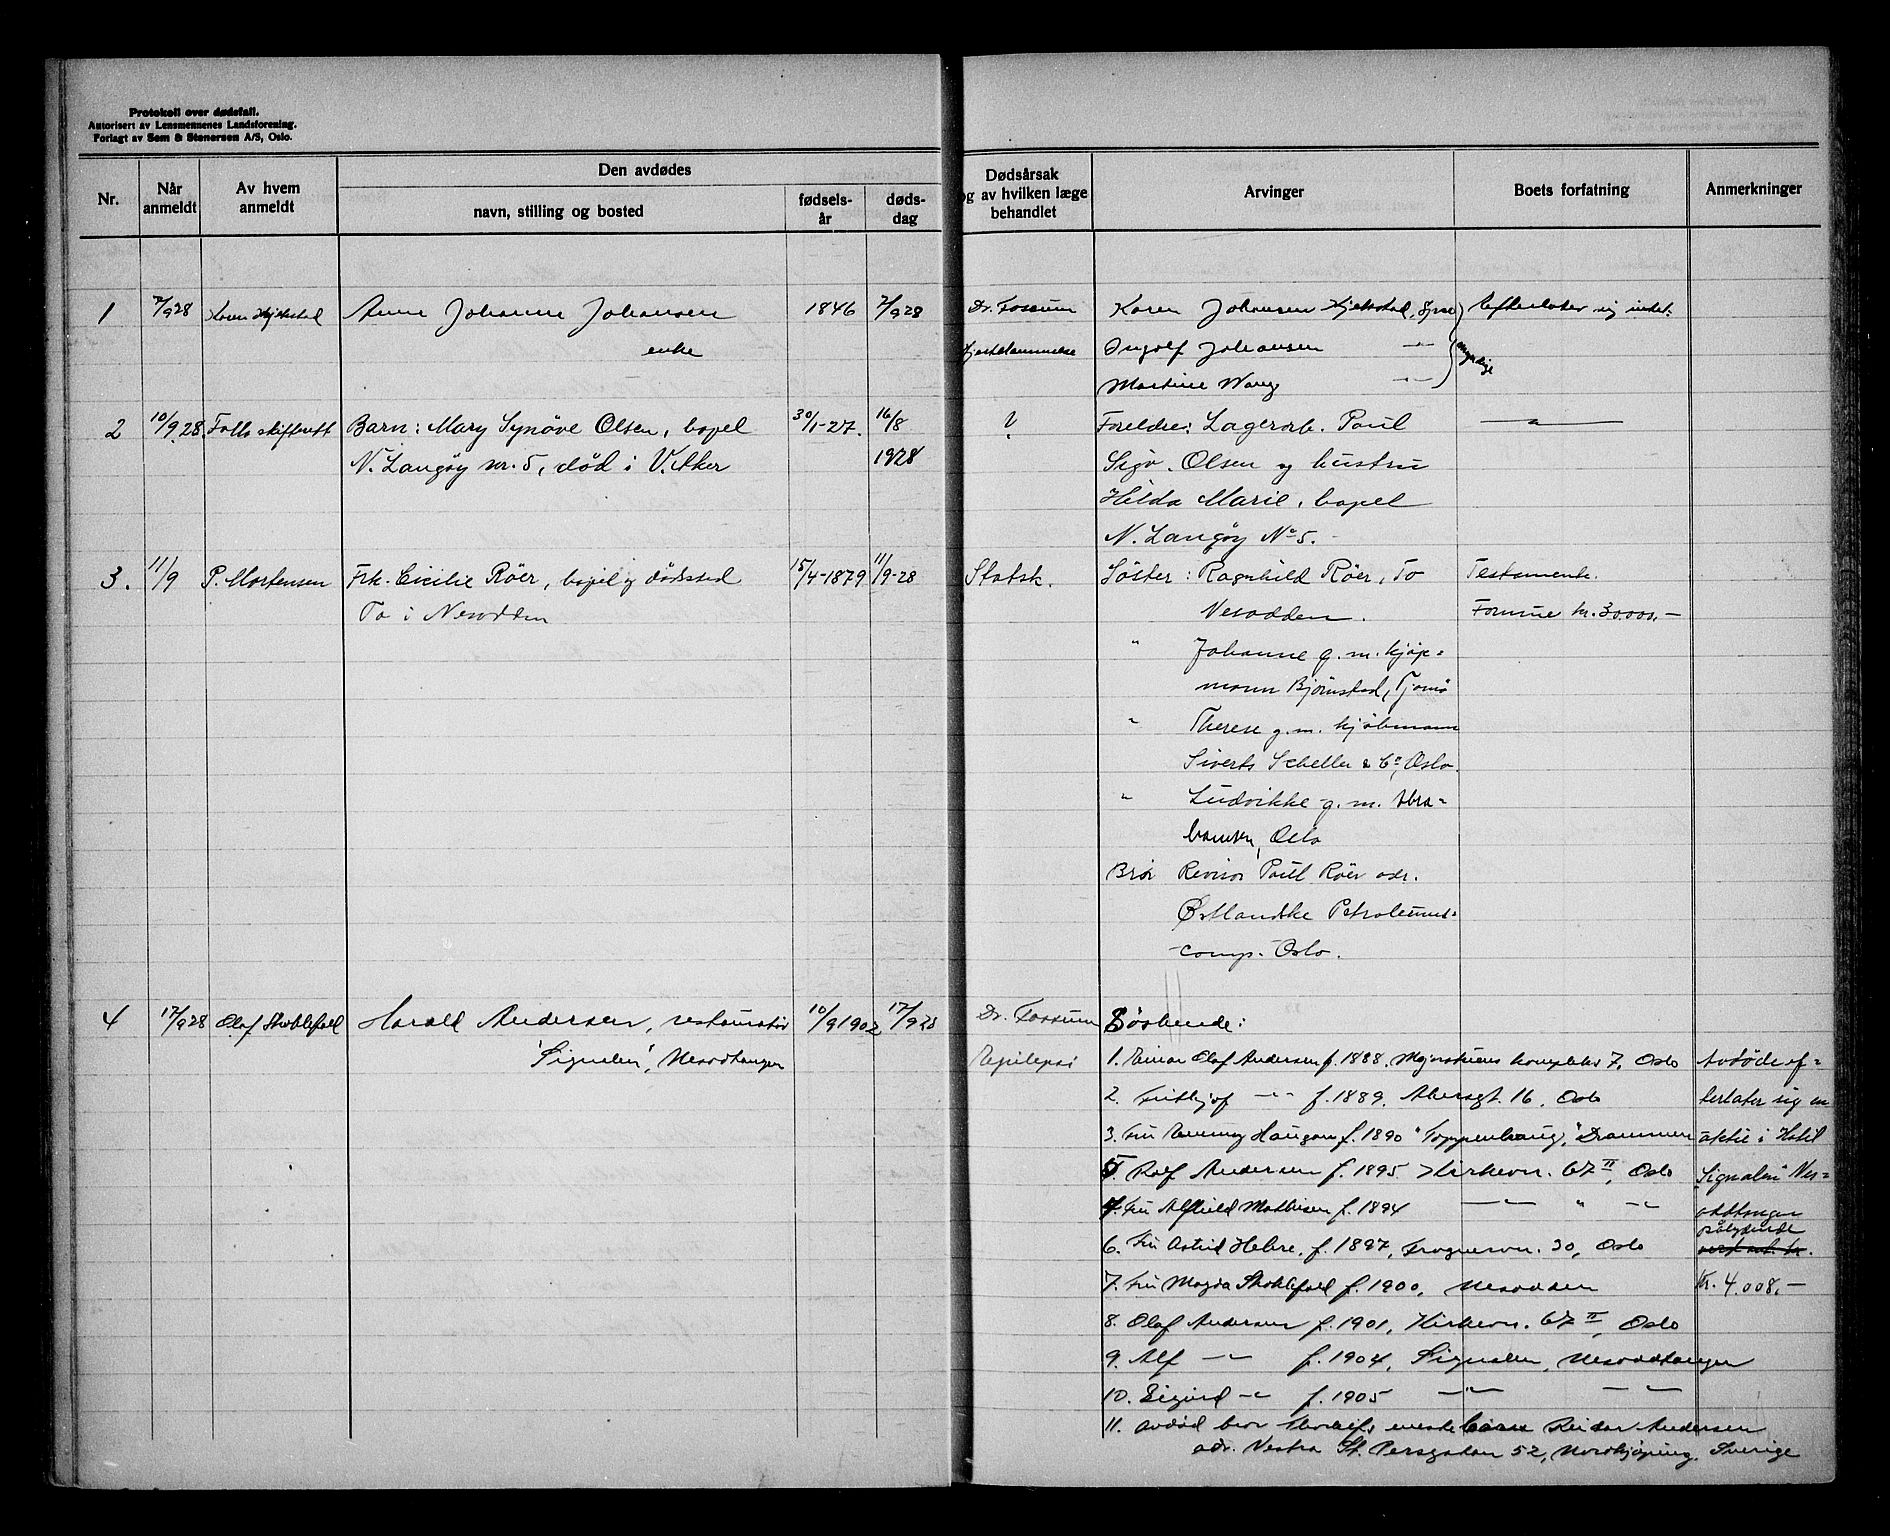 Protokoll over dødsfall.
Autorisert av Lensmennenes Landsforening.
Forlagt av Sem & Stenersen A/S, Oslo.
Nr.
Når anmeldt
Av hvem anmeldt
Den avdødes
navn, stilling og bosted
fødsels-år
døds-dag
Dødsårsak
og av hvilken læge
behandlet
Arvinger
Boets forfatning
Anmerkninger
1 7/9 28 Karen Hjelkstad Anne Johanne Johansen 1846 7/9 28 Dr. Fossum Karen Johansen Hjelkstad, Efterlater sig intet.
enke Ingolf Johansen — " — myndige
Martine Wang — " —
2 10/9.28. Follo skifterett Barn: Mary Synøve Olsen, bopel 30/1-27. 16/8 ? Foreldre: Lagerarb. Paul — " —
N. Langøy nr. 5, død i V. Aker 1928 Sigv. Olsen og hustru
Hilda Marie, bopel
N. Langøy No 5.
3. 11/9 P. Mortensen Frk. Cicilie Röer, bopel og dødssted 15/4-1879 11/9-28 Statsk. Søster: Ragnhild Röer, To Testamente.
To i Nesodden Nesodden. Formue kr. 30.000.-
" Johanne g. m. kjøp=
mann Bjørnstad, Tjømø
" Therese g. m. kjøbmann
Siverts Scheller & Co, Oslo.
" Ludvikke g. m. Abra=
hamsen, Oslo
Bror Revisor Paul Röer adr.
Østlandske Petroleums=
comp. Oslo.
4 17/9 28 Olaf Harald Andersen, restauratør 10/9 1902 17/9 28 Dr. Fossum Søskende:
"Signalen", Nesoddtangen Epilepsi 1. Einar Olaf Andersen f. 1888. Majorstuens kompleks 7, Oslo Avdøde ef=
2. Frithjof — " — f. 1889. 16, Oslo terlater sig en
3. Fru Haugan f. 1890 "Toppenhaug," Drammen aktie i Hotel
5. Rolf Andersen f. 1895 Kirkevn. 67 II, Oslo "Signalen" Nes=
4. Fru Alfhild Mathisen f. 1894 — " — " — " — oddtangen
pålydende
6. Fru Astrid Hebre, f. 1897, Frognervn. 30, Oslo
7. Fru Magda f. 1900, Nesodden Kr. 4.008.-
8. Olaf Andersen f. 1901, Kirkevn. 67 II, Oslo
9. Alf — " — f. 1904, Signalen, Nesoddtangen
10. Sigurd — " — f. 1905 — " — — " —
11. Avdød bror eneste barn Reidar Andersen
adr. Vestra St. Persgatan 52, Norrkjøping. Sverige